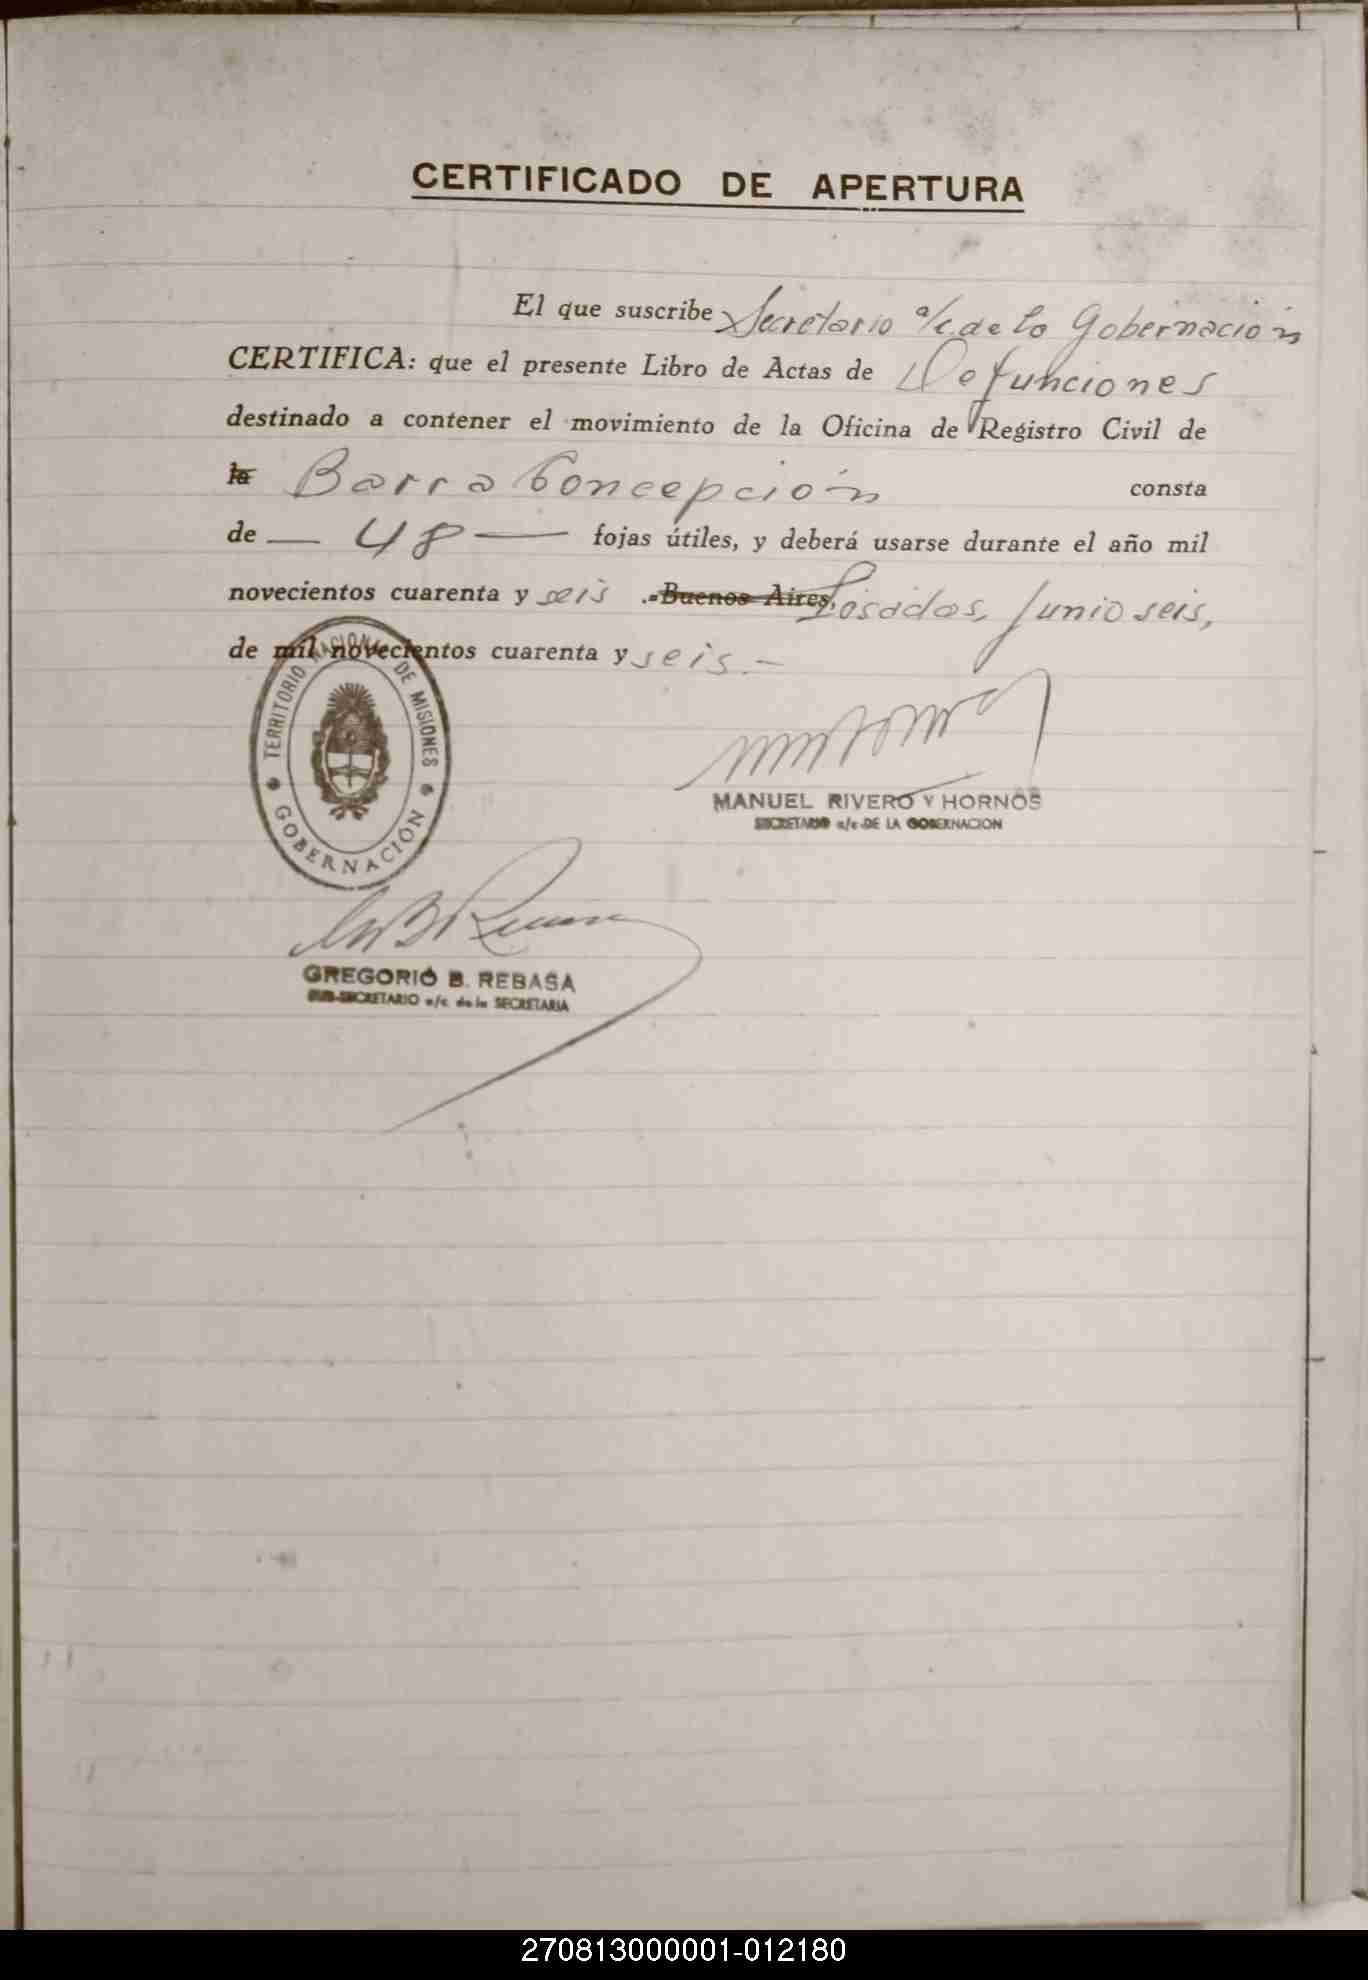 CERTIFICADO DE APERTURA
El que suscribe Secretario a/c. de la Gobernación
CERTIFICA: que el presente Libro de Actas de Defunciones
destinado a contener el movimiento de la Oficina de Registro Civil de
la Barra Concepción consta
de — 48 — fojas útiles, y deberá usarse durante el año mil
novecientos cuarenta y seis .-Buenos Aires, Posadas, Junio seis,
de mil novecientos cuarenta y seis.-
TERRITORIO NACIONAL DE MISIONES
GOBERNACIÓN
MANUEL RIVERO Y HORNOS
SECRETARIO a/c DE LA GOBERNACION
GREGORIO B. REBASA
SUB-SECRETARIO a/c de la SECRETARIA
270813000001-012180